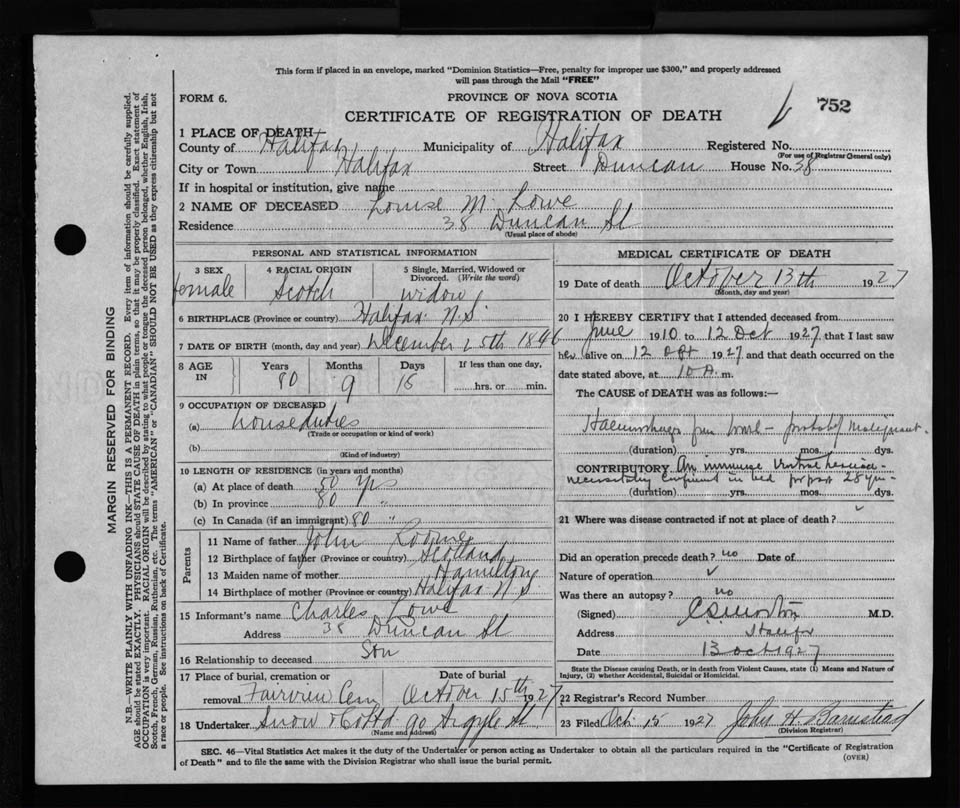 This form if placed in an envelope, marked "Dominion Statistics—Free, penalty for improper use $300," and properly addressed
will pass through the Mail "FREE"
FORM 6.
PROVINCE OF NOVA SCOTIA
752
CERTIFICATE OF REGISTRATION OF DEATH
1 PLACE OF DEATH
County of Halifax Municipality of Halifax Registered No.
(For use of Registrar General only)
City or Town Halifax Street Duncan House No. 38
If in hospital or institution, give name
2 NAME OF DECEASED Louise M. Lowe
Residence 38 Duncan St
(Usual place of abode)
PERSONAL AND STATISTICAL INFORMATION
3 SEX 4 RACIAL ORIGIN 5 Single, Married, Widowed or Divorced. (Write the word)
female Scotch widow
6 BIRTHPLACE (Province or country) Halifax N.S.
7 DATE OF BIRTH (month, day and year) December 25th 1846
8 AGE IN Years Months Days If less than one day,
80 9 16 hrs. or min.
9 OCCUPATION OF DECEASED
(a) house duties
(Trade or occupation or kind of work)
(b)
(Kind of industry)
10 LENGTH OF RESIDENCE (in years and months)
(a) At place of death 80 yrs
(b) In province 80 "
(c) In Canada (if an immigrant) 80 "
Parents
11 Name of father John
12 Birthplace of father (Province or country) Scotland
13 Maiden name of mother Hamilton
14 Birthplace of mother (Province or country) Halifax N S
15 Informant's name Charles Lowe
Address 38 Duncan St
16 Relationship to deceased Son
17 Place of burial, cremation or removal Date of burial
Fairview Cem October 15th 1927
18 Undertaker Snow & Co Ltd 90 Argyle St
(Name and address)
MEDICAL CERTIFICATE OF DEATH
19 Date of death October 13th 1927
(Month, day and year)
20 I HEREBY CERTIFY that I attended deceased from
June 1910 to 12 Oct 1927 that I last saw
her alive on 12 Oct 1927 and that death occurred on the
date stated above, at 10 A. m.
The CAUSE of DEATH was as follows:—
Haemorrhage from — probably Malignant.
(duration) yrs. mos. dys.
CONTRIBUTORY An immense Ventral hernia
necessitating confinement in bed for past 28 yrs
(duration) yrs. mos. dys.
21 Where was disease contracted if not at place of death?
Did an operation precede death? no Date of
Nature of operation
Was there an autopsy? no
(Signed) M.D.
Address Halifax
Date 13 Oct 1927
State the Disease causing Death, or in death from Violent Causes, state (1) Means and Nature of
Injury, (2) whether Accidental, Suicidal or Homicidal.
22 Registrar's Record Number
23 Filed Oct 15 1927 John H. Barnstead
(Division Registrar)
SEC. 46—Vital Statistics Act makes it the duty of the Undertaker or person acting as Undertaker to obtain all the particulars required in the "Certificate of Registration
of Death" and to file the same with the Division Registrar who shall issue the burial permit.
(OVER)
MARGIN RESERVED FOR BINDING
N.B.—WRITE PLAINLY WITH UNFADING INK—THIS IS A PERMANENT RECORD. Every item of information should be carefully supplied.
AGE should be stated EXACTLY. PHYSICIANS should STATE CAUSE OF DEATH in plain terms, so that it may be properly classified. Exact statement of
OCCUPATION is very important. RACIAL ORIGIN will be described by stating to what people or tongue the deceased person belonged, whether English, Irish,
Scotch, French, German, Russian, Ruthenian, etc. The terms "AMERICAN" or "CANADIAN" SHOULD NOT BE USED as they express citizenship but not
a race or people. See instructions on back of Certificate.